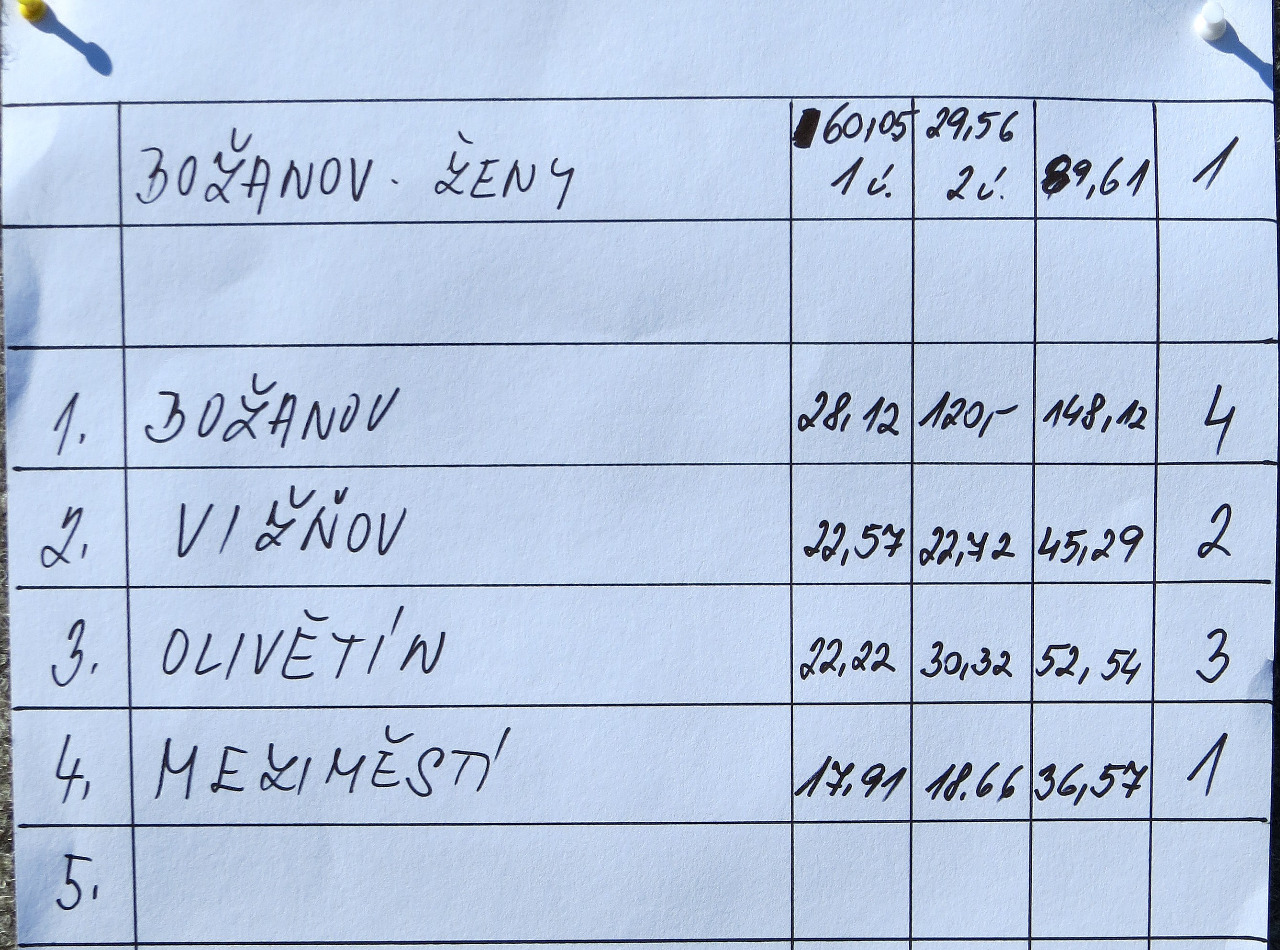 60,05 29,56
BOŽANOV. ŽENY 1 č. 2 č. 89,61 1
1. BOŽANOV 28,12 120,- 148,12 4
2. VIŽŇOV 22,57 22,72 45,29 2
3. OLIVĚTÍN 22,22 30,32 52,54 3
4. MEZIMĚSTÍ 17,91 18.66 36,57 1
5.